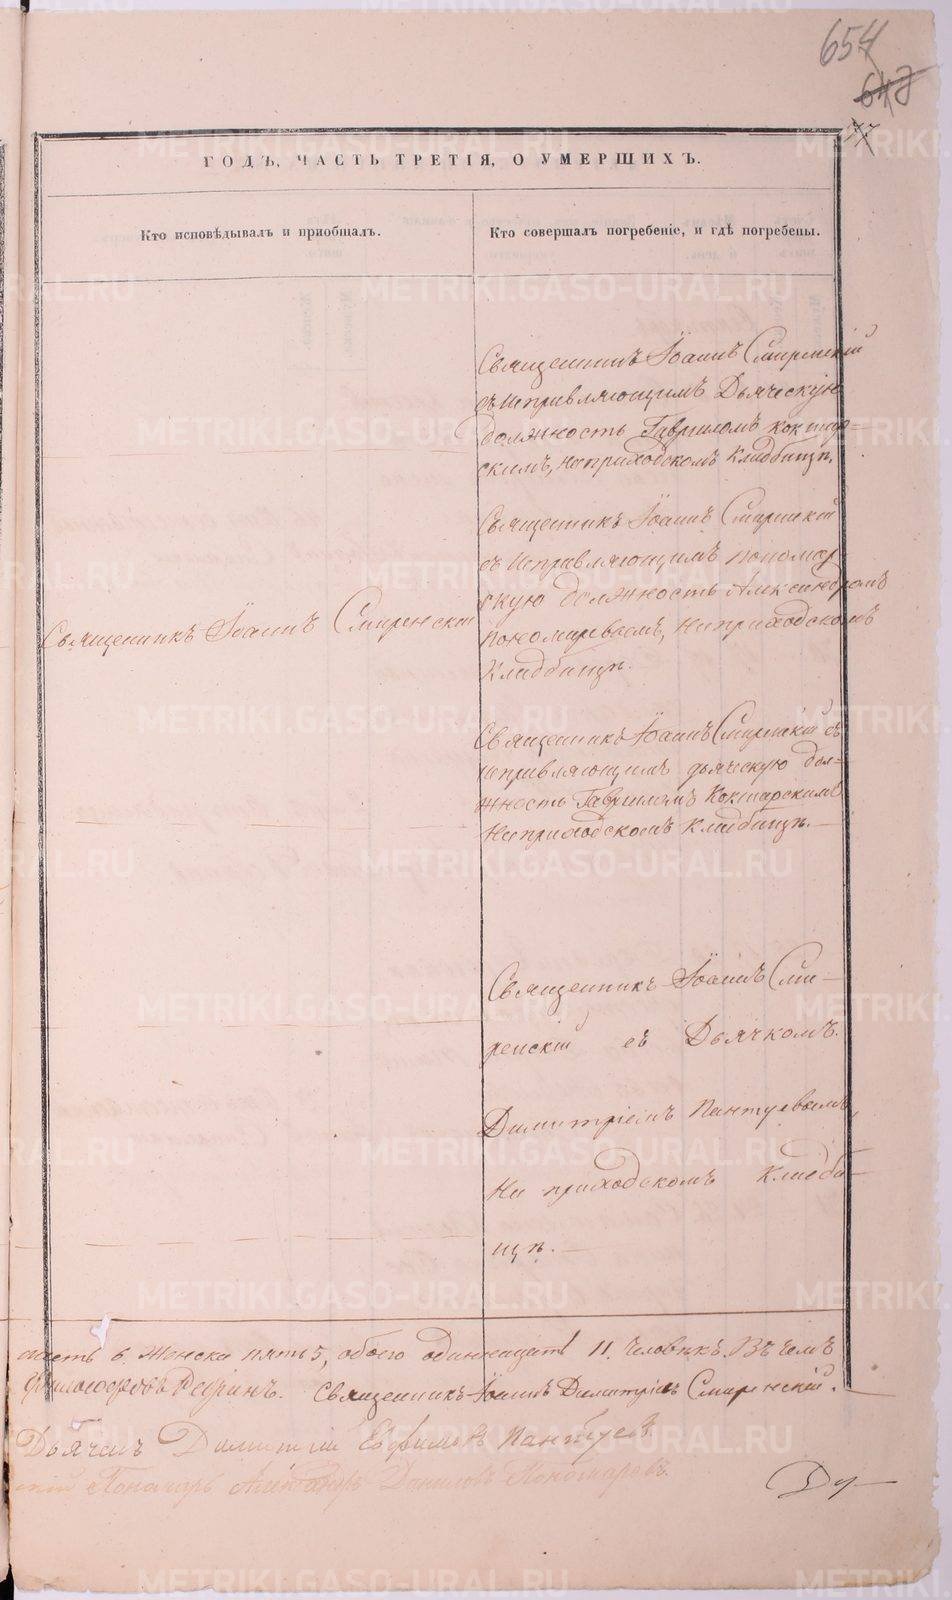 654
643
77
ГОДЪ, ЧАСТЬ ТРЕТІЯ, О УМЕРШИХЪ.
Кто исповѣдывалъ и приобщалъ.
Кто совершалъ погребеніе, и гдѣ погребены.
Священникъ Іоаннъ Смиренскій
съ исправляющимъ Дьяческую
должность Гавриломъ Кокшар-
скимъ, на приходскомъ Кладбищѣ.
Священникъ Іоаннъ Смиренскій
съ исправляющимъ пономар
скую должность Александромъ
Пономаревымъ, на приходскомъ
Кладбищѣ.
Священникъ Іоаннъ Смиренскій
Священникъ Іоаннъ Смиренскій съ
исправляющимъ дьяческую дол-
жность Гавриломъ Кокшарскимъ
на приходскомъ Кладбищѣ.
Священникъ Іоаннъ Сми-
ренскій съ Дьячкомъ
Димитріемъ Пантуевымъ,
на приходскомъ Кладби-
щѣ.
шесть 6. Женска пять 5, обоего одиннадцать 11. Человѣкъ. Въ чемъ
Священникъ Іоаннъ Димитріевъ Смиренскій.
Дьячекъ Димитрій Евфимьевъ Пантуевъ
Пономарь Александръ Даниловъ Пономаревъ.
METRIKI.GASO-URAL.RU